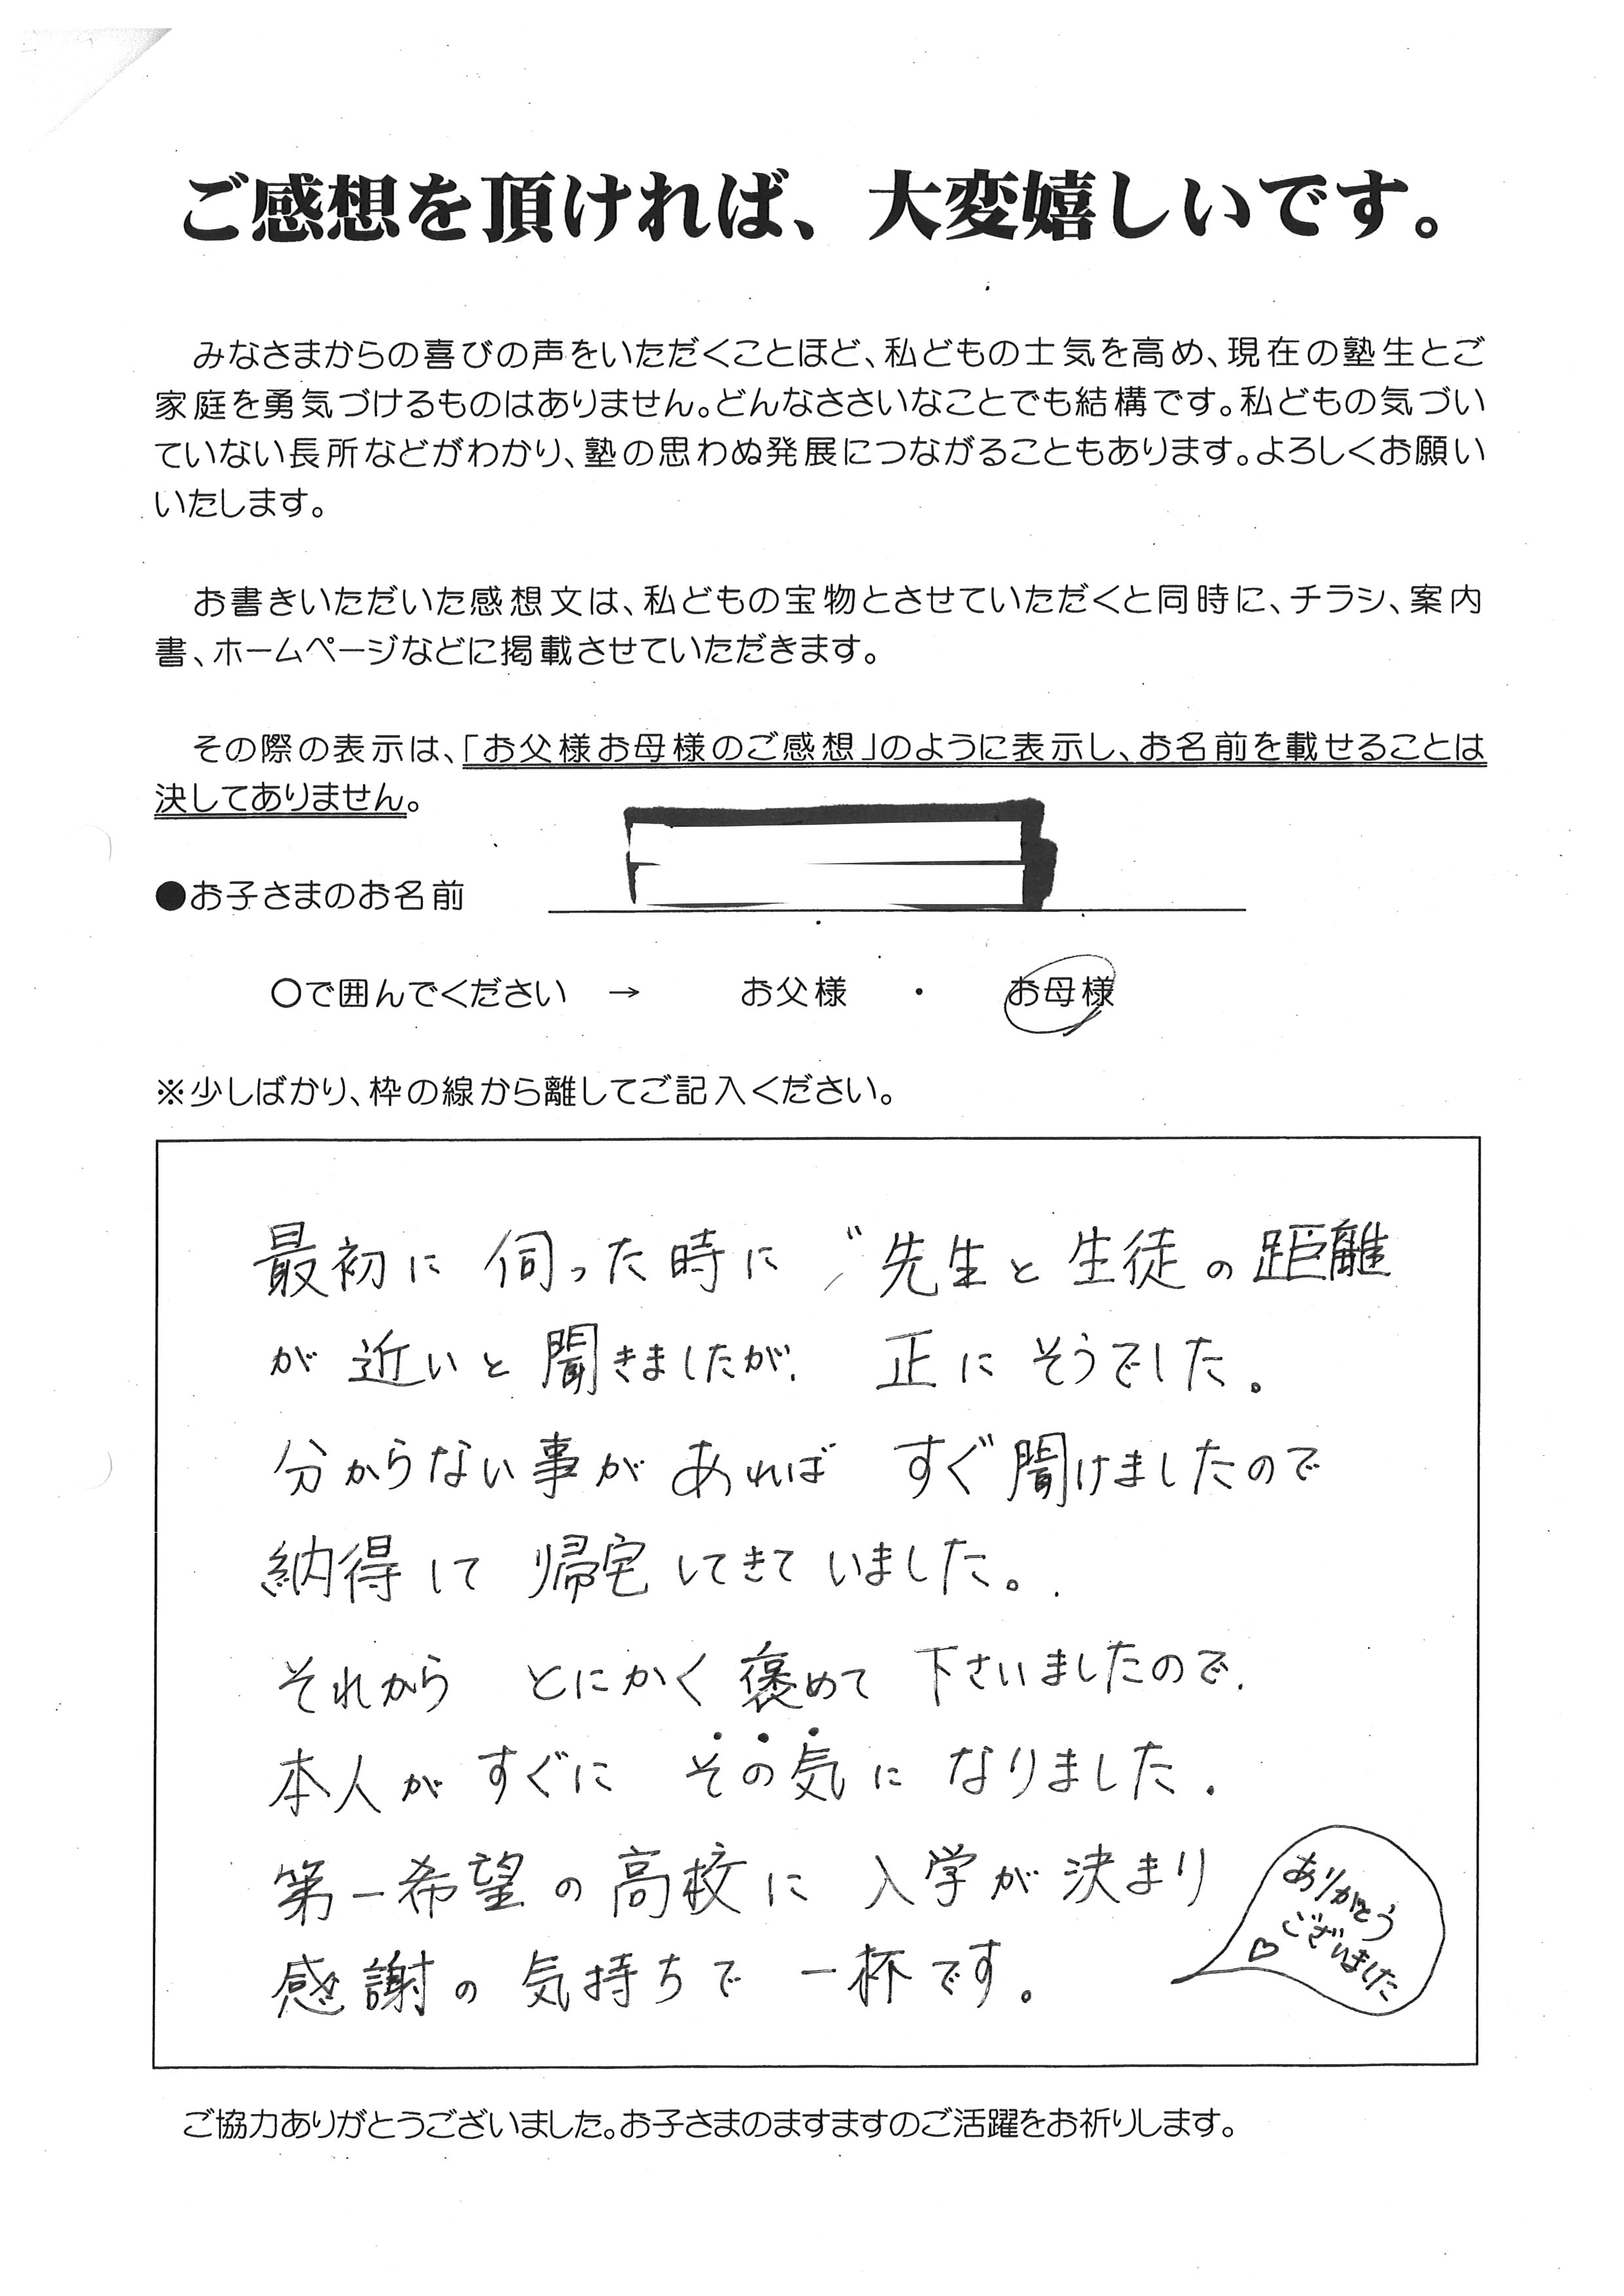 ご感想を頂ければ、大変嬉しいです。
みなさまからの喜びの声をいただくことほど、私どもの士気を高め、現在の塾生とご
家庭を勇気づけるものはありません。どんなささいなことでも結構です。私どもの気づい
ていない長所などがわかり、塾の思わぬ発展につながることもあります。よろしくお願い
いたします。
お書きいただいた感想文は、私どもの宝物とさせていただくと同時に、チラシ、案内
書、ホームページなどに掲載させていただきます。
その際の表示は、「お父様お母様のご感想」のように表示し、お名前を載せることは
決してありません。
●お子さまのお名前
○で囲んでください → お父様 ・ お母様
※少しばかり、枠の線から離してご記入ください。
最初に 伺った時に 〃先生と生徒の距離
が 近いと 聞きましたが、 正に そうでした。
分からない事が あれば すぐ聞けましたので
納得して 帰宅してきていました。
それから とにかく褒めて 下さいましたので、
本人が すぐに その気に なりました.
第一希望の高校に 入学が決まり
感謝の 気持ちで 一杯です。
ありがとう
ございました
♡
ご協力ありがとうございました。お子さまのますますのご活躍をお祈りします。